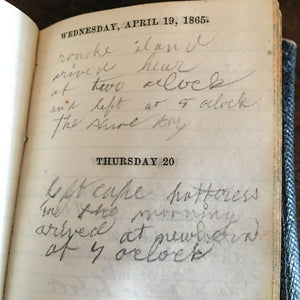 WEDNESDAY, APRIL 19, 1865.
ronoke iland
arived hear
at two oclock
and left at 8 oclock
the same day
THURSDAY 20
left cape hatteress
in the morning
arived at newbern
at 7 oclock